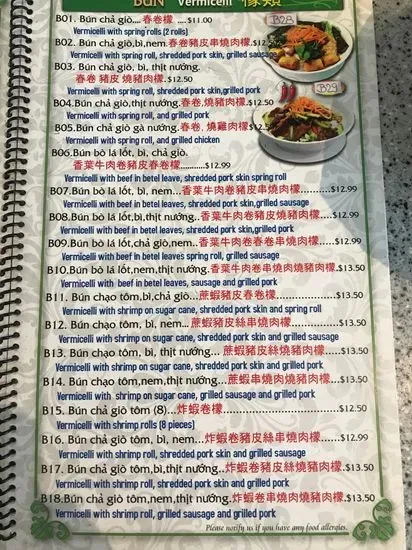 BÚN Vermicelli 檬類
B01. Bún chả giò.... 春卷檬 .... $11.00
Vermicelli with spring rolls (2 rolls)
B28
B02. Bún chả giò,bì,nem.春卷豬皮串燒肉檬.$12.50
Vermicelli with spring roll, shredded pork skin, grilled sausage
B03. Bún chả giò, bì, thịt nướng.
春卷 豬皮 燒豬肉檬.$12.50
Vermicelli with spring roll, shredded pork skin,grilled pork
B29
B04.Bún chả giò,thịt nướng.春卷,燒豬肉檬.$12.50
Vermicelli with spring roll, and grilled pork
B05.Bún chả giò gà nướng.春卷, 燒雞肉檬.$12.50
Vermicelli with spring roll, and grilled chicken
B06.Bún bò lá lốt, bì, chả giò.
香葉牛肉卷豬皮春卷檬...........$12.99
Vermicelli with beef in betel leaves, shredded pork skin spring roll
B07.Bún bò lá lốt, bì, nem...香葉牛肉卷豬皮串燒肉檬.........$12.99
Vermicelli with beef in betel leaves, shredded pork skin,grilled sausage
B08.Bún bò lá lốt,bì,thịt nướng..香葉牛肉卷豬皮燒豬肉檬....$12.99
Vermicelli with beef in betel leaves, shredded pork skin,grilled pork
B09.Bún bò lá lốt,chả giò,nem..香葉牛肉卷春卷串燒肉檬....$12.99
Vermicelli with beef in betel leaves spring roll, grilled sausage
B10.Bún bò lá lốt,nem,thịt nướng..香葉牛肉卷串燒肉燒豬肉檬.$13.50
Vermicelli with beef in betel leaves, sausage and grilled pork
B11. Bún chạo tôm,bì,chả giò...蔗蝦豬皮春卷檬.....................$13.50
Vermicelli with shrimp on sugar cane, shredded pork skin and spring roll
B12. Bún chạo tôm, bì, nem...蔗蝦豬皮絲串燒肉檬...............$13.50
Vermicelli with shrimp on sugar cane, shredded pork skin and grilled sausage
B13. Bún chạo tôm, bì, thịt nướng... 蔗蝦豬皮絲燒豬肉檬...$13.50
Vermicelli with shrimp on sugar cane, shredded pork skin and grilled pork
B14. Bún chạo tôm,nem,thịt nướng...蔗蝦串燒肉燒豬肉檬...$13.50
Vermicelli with shrimp on sugar cane, grilled sausage and grilled pork
B15. Bún chả giò tôm (8)...炸蝦卷檬..............................$12.50
Vermicelli with shrimp rolls (8 pieces)
B16. Bún chả giò tôm, bì, nem...炸蝦卷豬皮絲串燒肉檬...$12.99
Vermicelli with shrimp roll, shredded pork skin and grilled sausage
B17. Bún chả giò tôm,bì,thịt nướng..炸蝦卷豬皮絲燒豬肉檬.$13.50
Vermicelli with shrimp roll, shredded pork skin and grilled pork
B18.Bún chả giò tôm,nem,thịt nướng.炸蝦卷串燒肉燒豬肉檬.$13.50
Vermicelli with shrimp roll, grilled sausage and grilled pork
Please notify us if you have any food allergies.